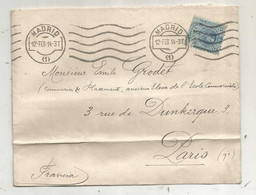 MADRID
12·FEB 14·3T
(1)
MADRID
12·FEB 14·3T
(1)
Monsieur Emile Grodet
(Commission de Placement, anciens Elèves de l'Ecole Commerciale)
3 rue de Dunkerque 3
Paris
Francia